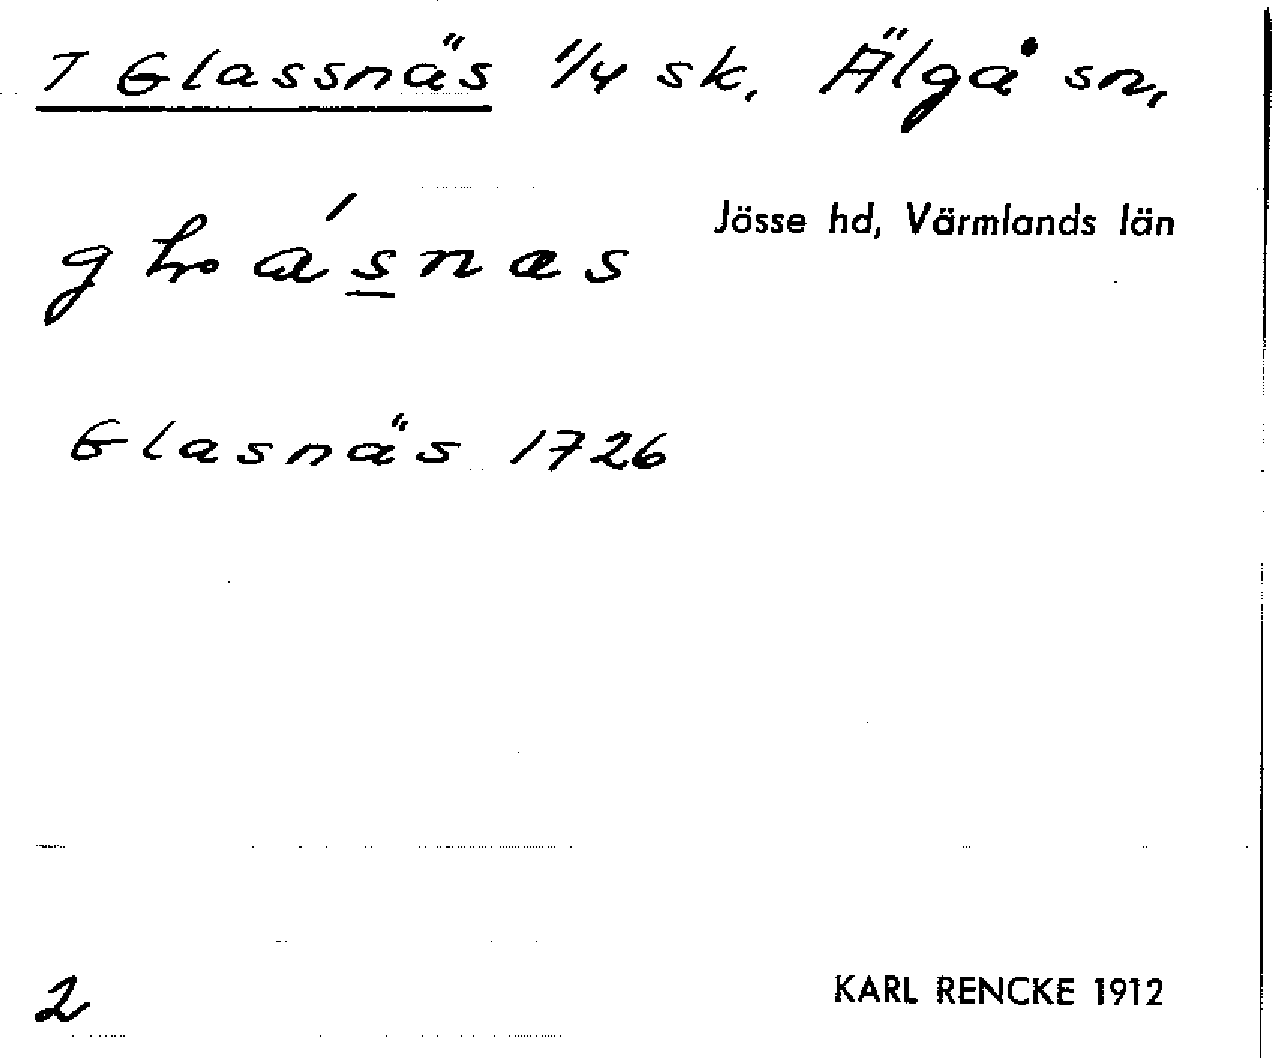 T Glassnäs 1/4 sk. Älgå sn,
Jösse hd, Värmlands län
Glasnäs 1726
2
KARL RENCKE 1912